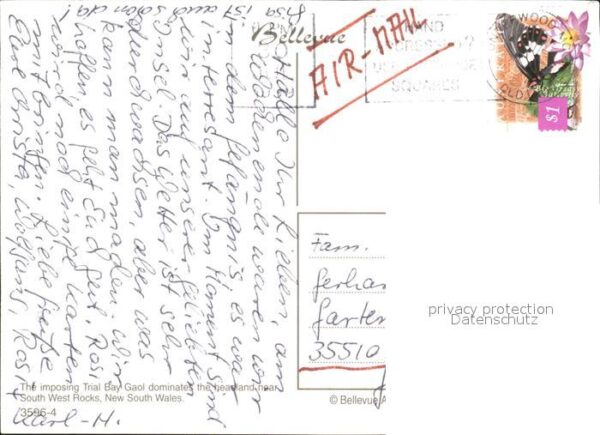 Hallo Ihr Lieben, am
Wochenende waren wir
in dem Gefängnis, es war
interesant. Im Moment sind
wir auf unserer geliebten
Insel. Das Wetter ist sehr
durchwachsen, aber was
kann man machen. Wir
hoffen, es geht Euch gut. Rosi
wird noch einige Karten
mitbringen. Liebe Grüße
Eure Christa, Wolfgang, Rosi +
Karl-H.
ist auch schon da!
Bellevue
AIR-MAIL
SQUARES
QLD
$1
Fam.
Gerhar
Garten
35510
privacy protection
Datenschutz
The imposing Trial Bay Gaol dominates the headland near
South West Rocks, New South Wales.
3596-4
© Bellevue A